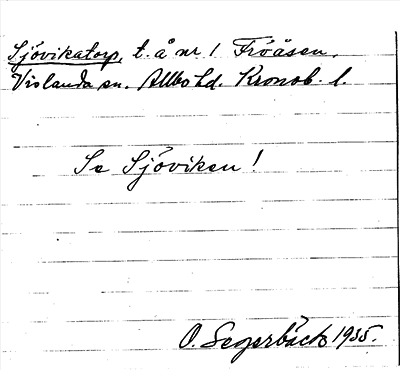 Sjövikatorp, t. å nr 1 Fröåsen,
Vislanda sn. Allbo hd. Kronob. l.
Se Sjöviken!
O. Segerbäck 1935.